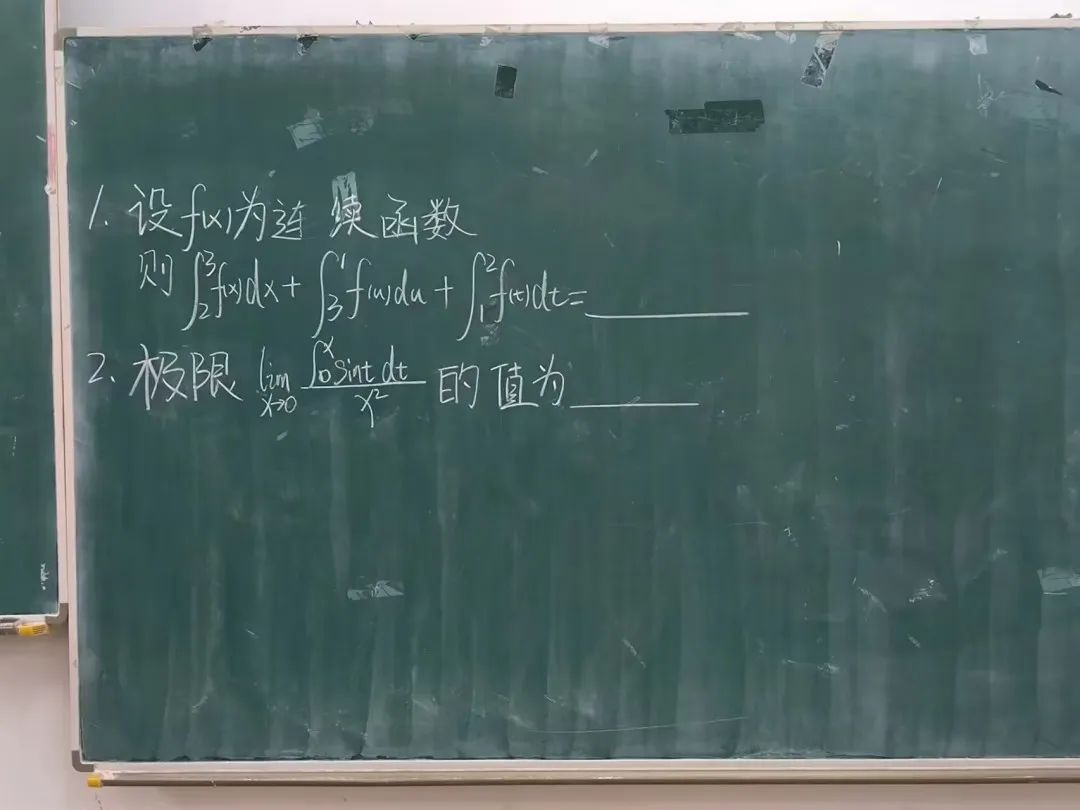 1. 设f(x)为连续函数
则 ∫₂³f(x)dx + ∫₃¹f(u)du + ∫₁²f(t)dt = ______
2. 极限 lim_{x→0} (∫₀ˣ sint dt)/x² 的值为______